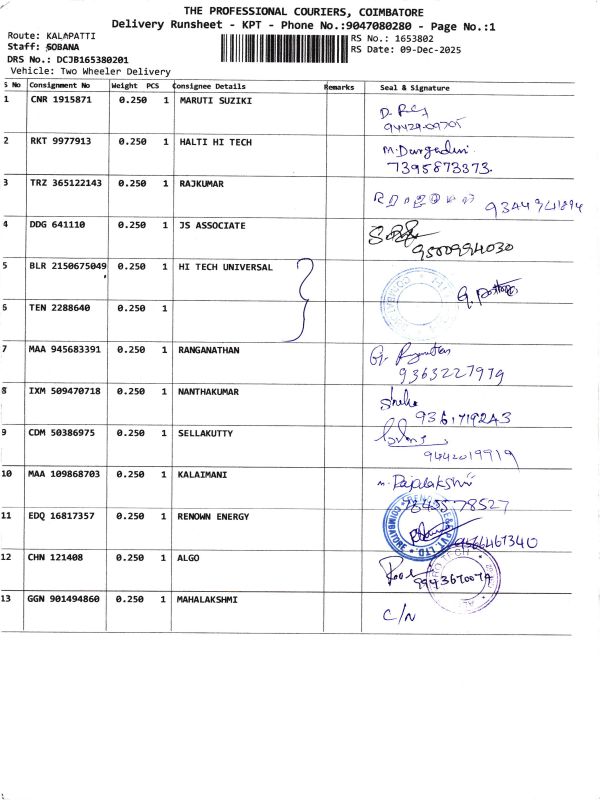 THE PROFESSIONAL COURIERS, COIMBATORE
Delivery Runsheet - KPT - Phone No.:9047080280 - Page No.:1
Route: KALAPATTI
RS No.: 1653802
Staff: SOBANA
RS Date: 09-Dec-2025
DRS No.: DCJB165380201
Vehicle: Two Wheeler Delivery
S No Consignment No Weight PCS Consignee Details Remarks Seal & Signature
1 CNR 1915871 0.250 1 MARUTI SUZIKI
2 RKT 9977913 0.250 1 HALTI HI TECH
7395873373.
3 TRZ 365122143 0.250 1 RAJKUMAR
4 DDG 641110 0.250 1 JS ASSOCIATE
9500994030
5 BLR 2150675049 0.250 1 HI TECH UNIVERSAL
6 TEN 2288640 0.250 1
7 MAA 945683391 0.250 1 RANGANATHAN
9363227979
8 IXM 509470718 0.250 1 NANTHAKUMAR
9361719243
9 CDM 50386975 0.250 1 SELLAKUTTY
9442019919
10 MAA 109868703 0.250 1 KALAIMANI
11 EDQ 16817357 0.250 1 RENOWN ENERGY
12 CHN 121408 0.250 1 ALGO
13 GGN 901494860 0.250 1 MAHALAKSHMI
C/N